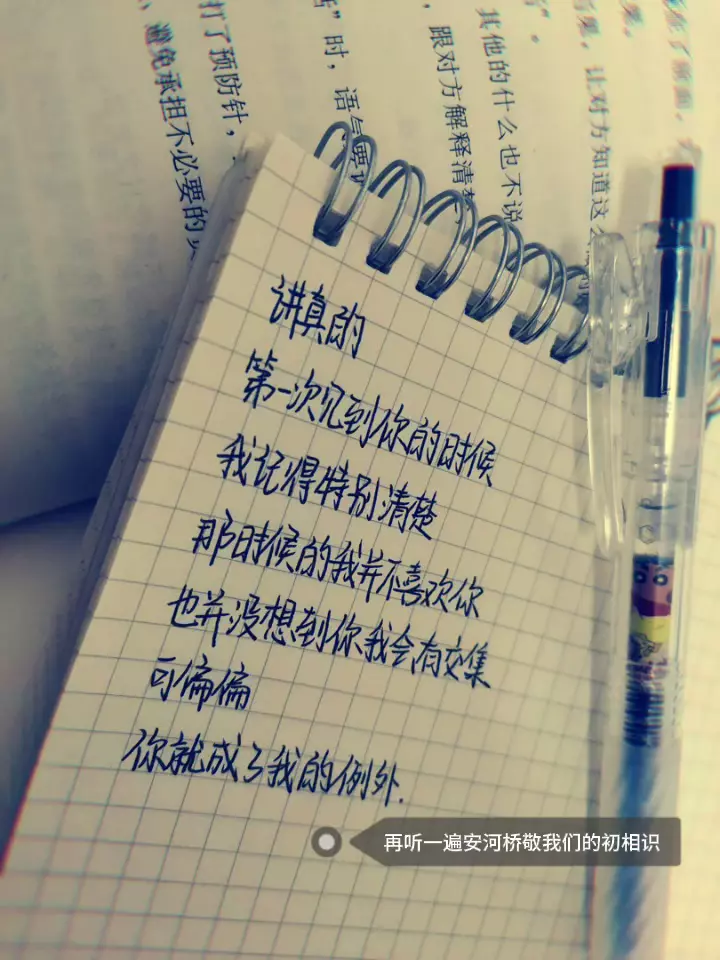 其他的什么也不说
跟对方解释清楚
让对方知道这么
打了预防针，
避免承担不必要的
讲真的
第一次见到你的时候
我记得特别清楚
那时候的我并不喜欢你
也并没想到你我会有交集
可偏偏
你就成了我的例外.
再听一遍安河桥敬我们的初相识